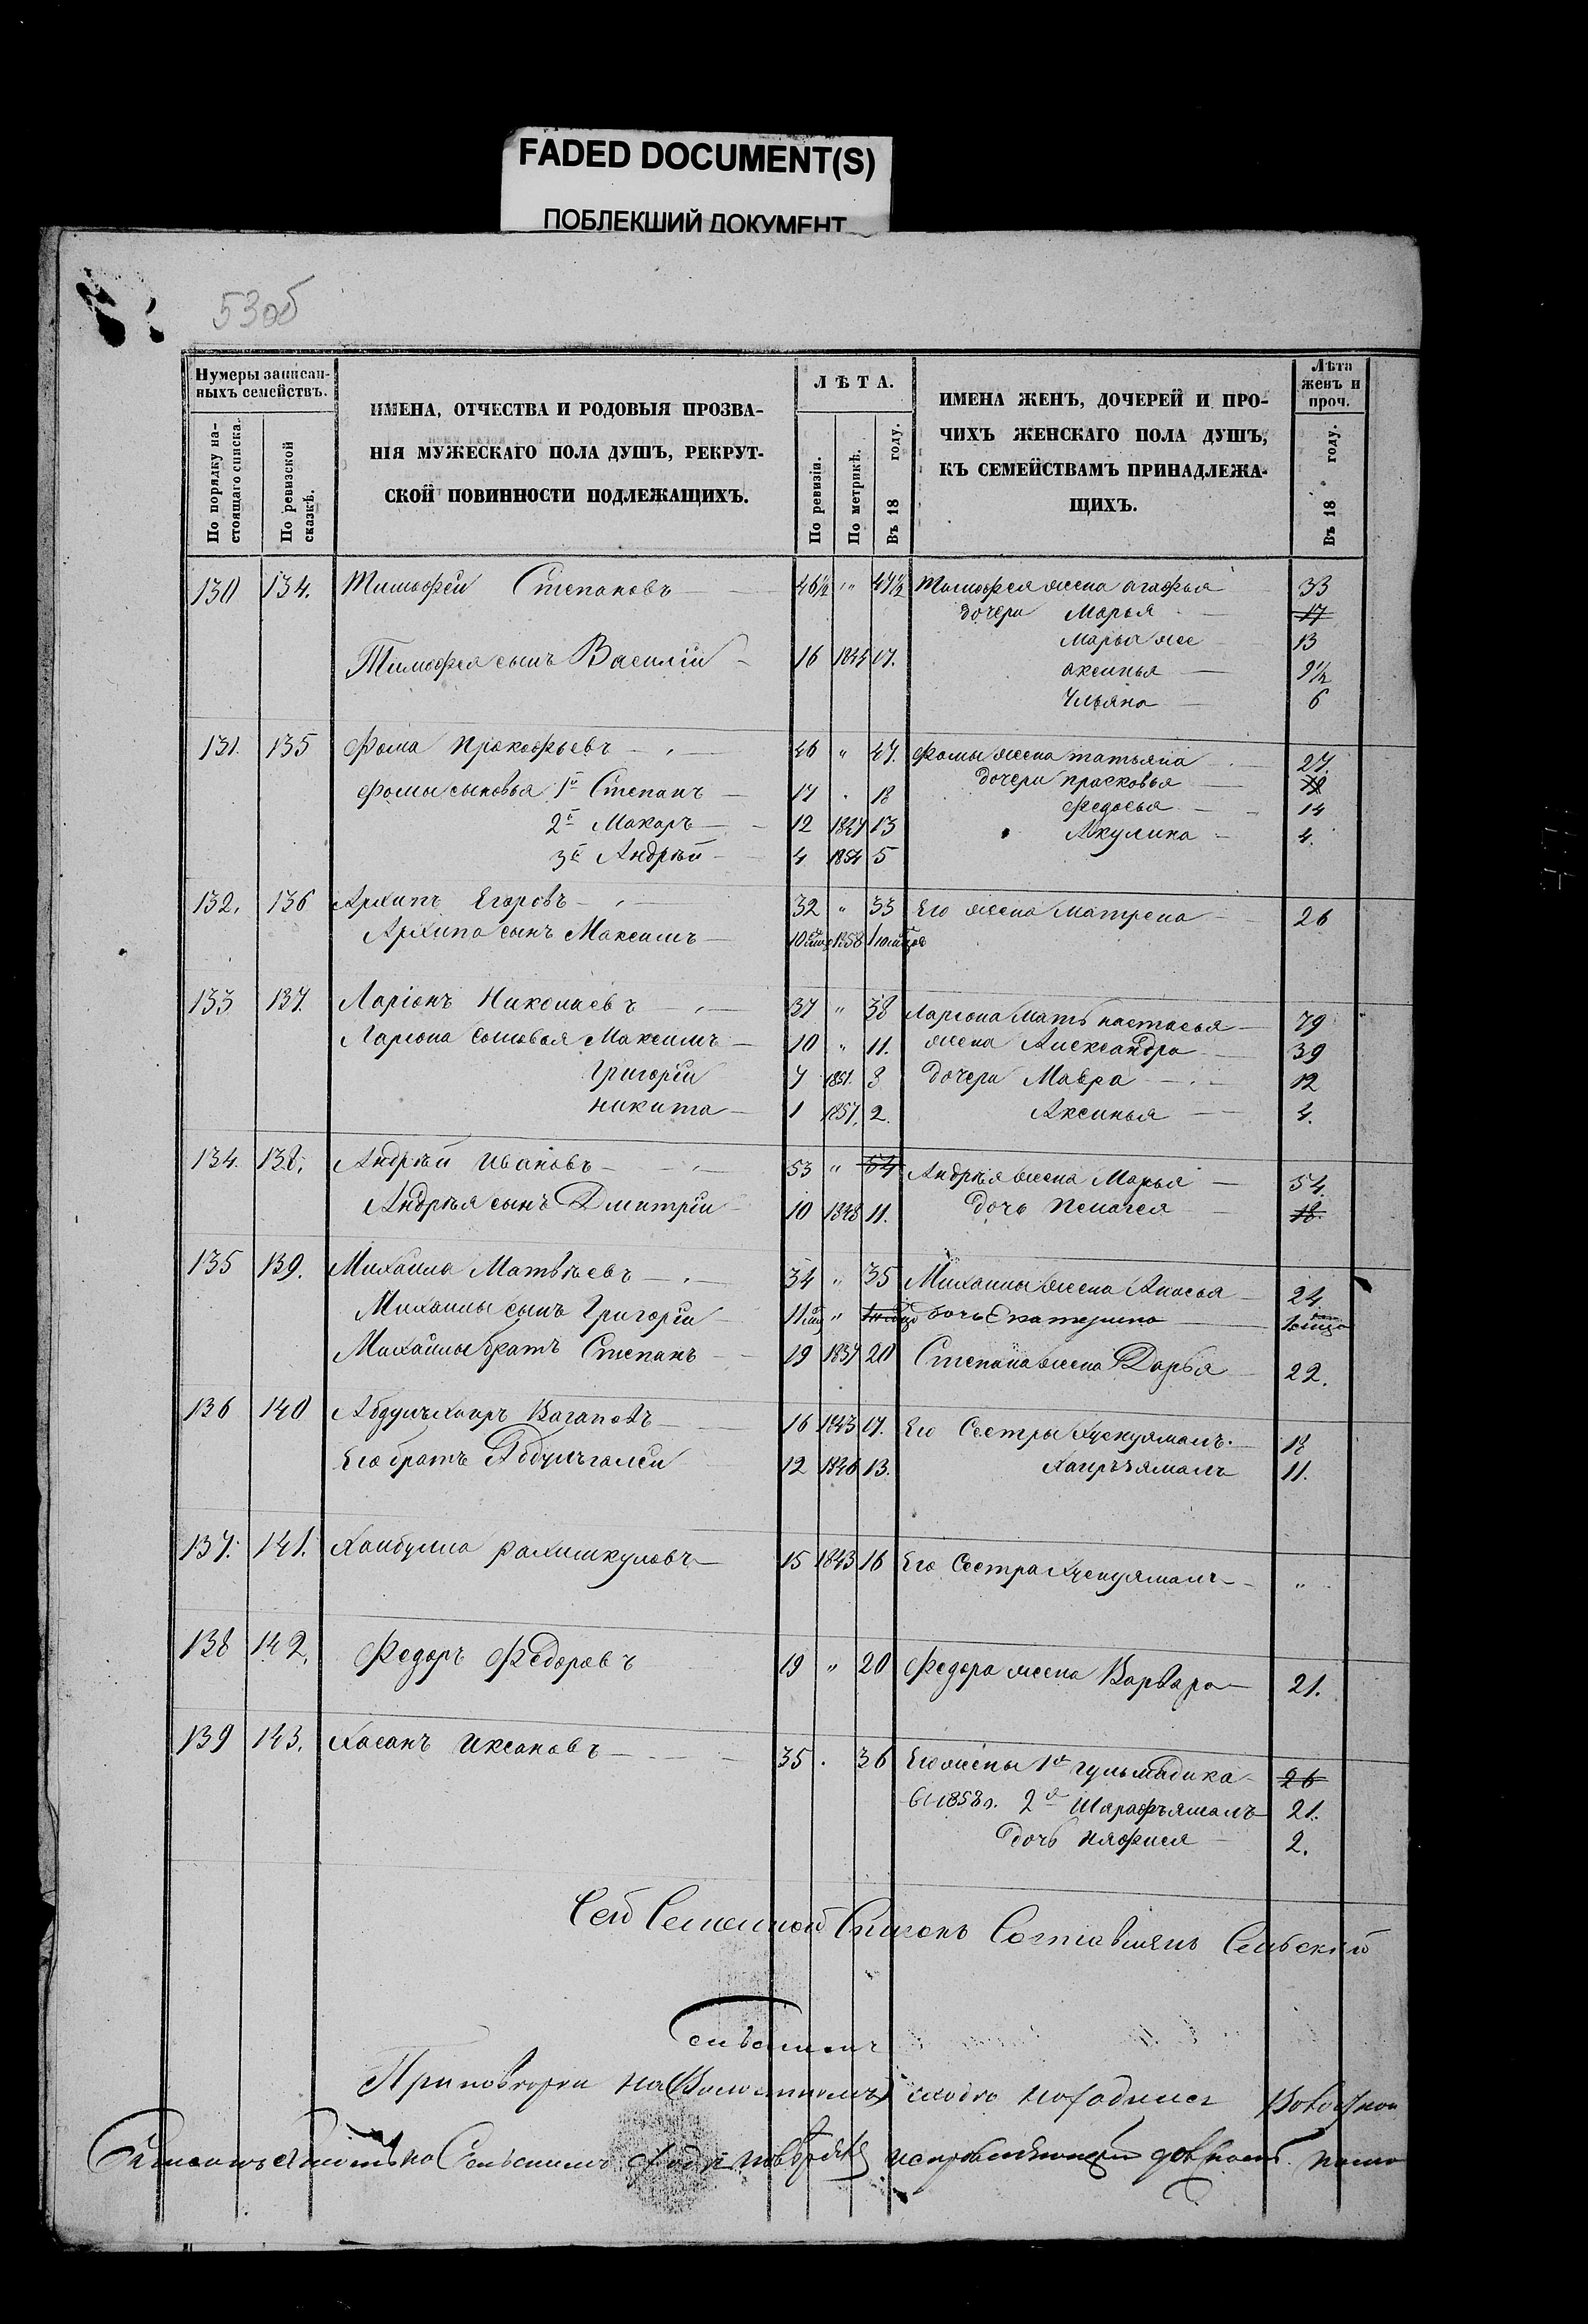 FADED DOCUMENT(S)
ПОБЛЕКШИЙ ДОКУМЕНТ
53об
Нумеры записан-
ныхъ семействъ.
По порядку на-
стоящаго списка.
По ревизской
сказкѣ.
ИМЕНА, ОТЧЕСТВА И РОДОВЫЯ ПРОЗВА-
НІЯ МУЖЕСКАГО ПОЛА ДУШЪ, РЕКРУТ-
СКОЙ ПОВИННОСТИ ПОДЛЕЖАЩИХЪ.
ЛѢТА.
По ревизіи.
По метрикѣ.
Въ 18 году.
ИМЕНА ЖЕНЪ, ДОЧЕРЕЙ И ПРО-
ЧИХЪ ЖЕНСКАГО ПОЛА ДУШЪ,
КЪ СЕМЕЙСТВАМЪ ПРИНАДЛЕЖА-
ЩИХЪ.
Лѣта
женъ и
проч.
Въ 18 году.
130 134. Тимофей Степановъ 46½ " 47½ Тимофея жена агафья 33
дочери Марья 17
Марья же 13
Тимофея сынъ Василій 16 1844 17.
аксинья 9½
Ульяна 6
131. 135 Фома Прокофьевъ 46 " 47. Фомы жена татьяна 27.
Фомы сыновья 1й Степанъ 17 . 18 дочери прасковья
Федосья 14
2й Макаръ 12 1847 13 Акулина 4.
3й Андрѣй 4 1854 5
132. 136 Архипъ Егоровъ 32 " 33 Его жена Матрена 26
Архипа сынъ Максимъ 1858
133 137. Ларіонъ Николаевъ 37 " 38 Ларіона Мать настасья 79
Ларіона сыновья Максимъ 10 " 11. жена Александра 39
Григорій 7 1851. 8 дочери Мавра 12
никита 1 1857. 2. Аксинья 4.
134. 138. Андрѣй Ивановъ 53 " 54 Андрѣя жена Марья 54.
Андрѣя сынъ Дмитрій 10 1848 11. дочь Пелагея 18.
135 139. Михаила Матвѣевъ 34 " 35 Михаилы жена Анасья 24.
Михаилы сынъ Григорій " дочь Екатерина
Михаилы братъ Степанъ 19 1837 20 Степана жена Дарья 22.
136 140 Абдулъхаиръ Вагаповъ 16 1843 17. Его Сестры Хуснуямалъ 18
Его братъ Абдулъгалей 12 1846 13. Хаиръямалъ 11.
137. 141. Хаибулла рахимкуловъ 15 1843 16 Его Сестра Хуснуямалъ "
138 142. Федоръ Федоровъ 19 " 20 Федора жена Варвара 21.
139 143. Хасанъ Иксановъ 35 . 36 Его жены 1я 26
въ 1858 г. 2я Шарафъямалъ 21.
дочь няфися 2.
Сей Семейной Списокъ Составленъ Сельский
При повѣрки на Волостномъ сходѣ находился